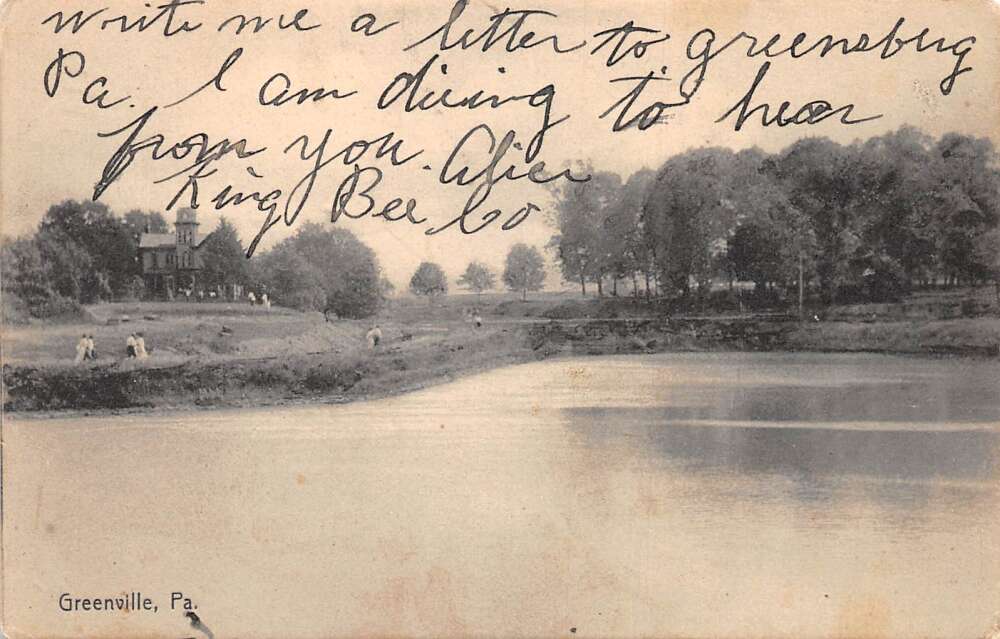 write me a letter to greensberg
Pa. I am dieing to hear
from you.
King Bee Co
Greenville, Pa.